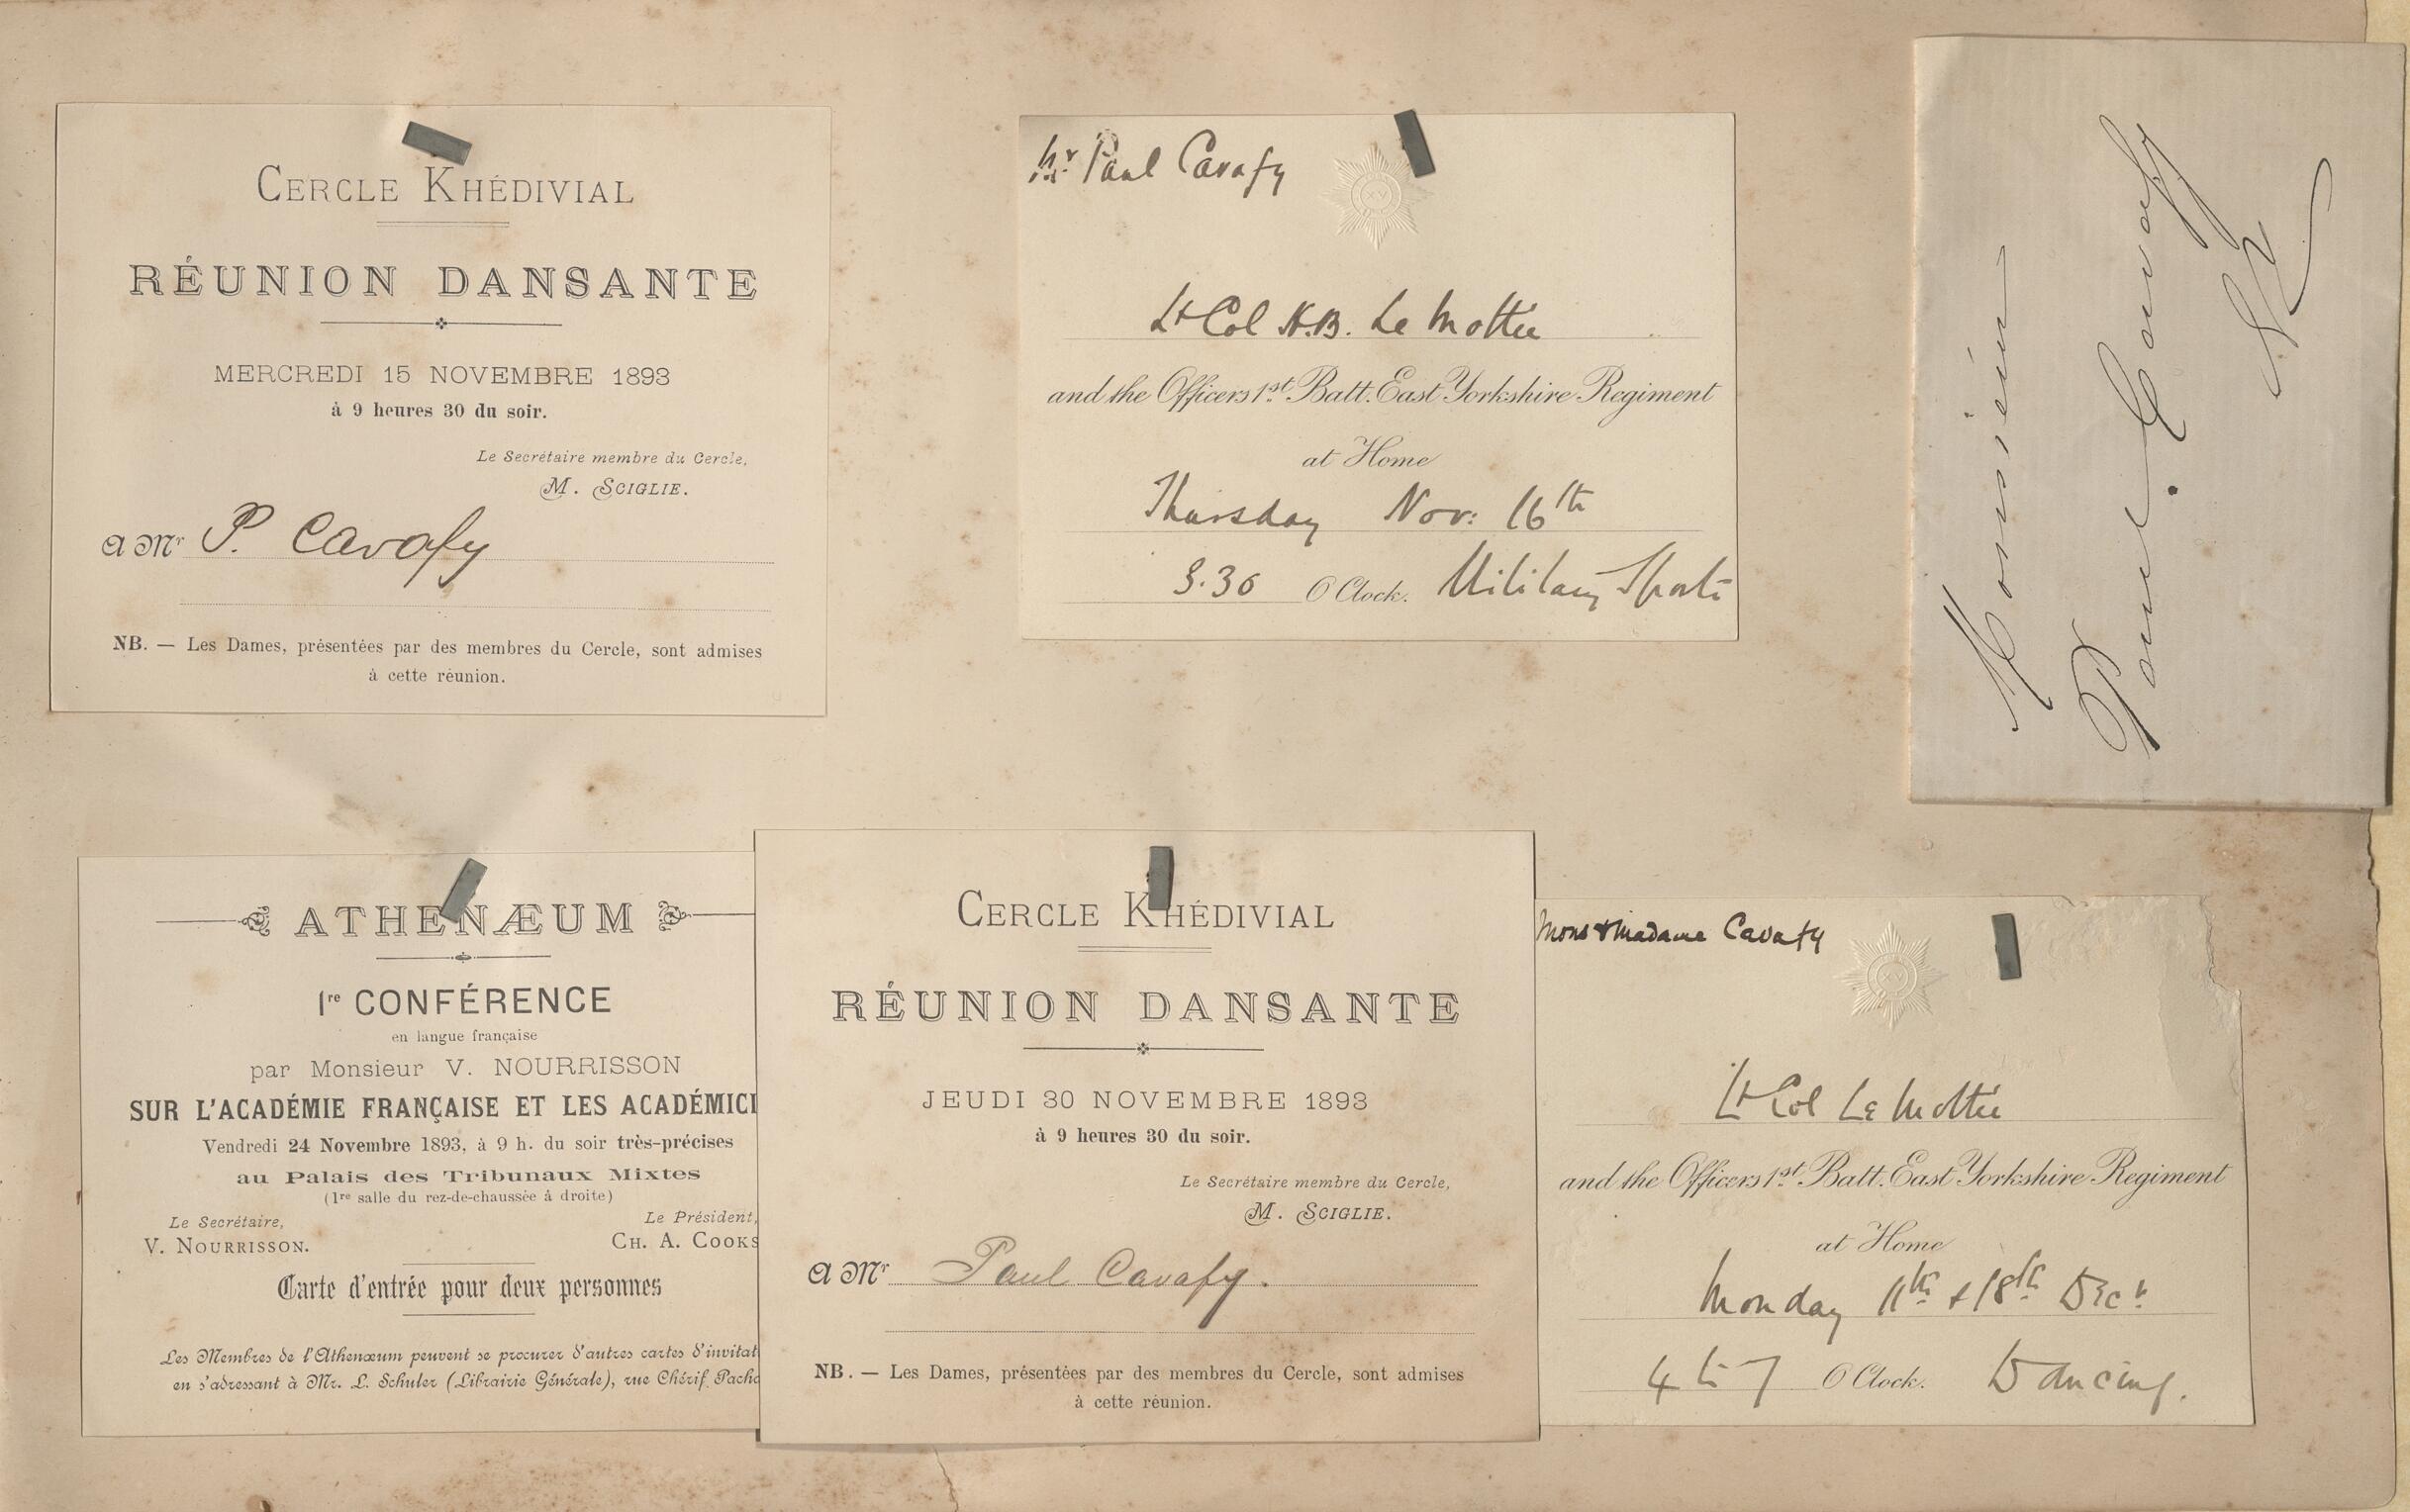 CERCLE KHÉDIVIAL
RÉUNION DANSANTE
MERCREDI 15 NOVEMBRE 1893
à 9 heures 30 du soir.
Le Secrétaire membre du Cercle,
M. SCIGLIE.
A Mr P. Cavafy
NB. — Les Dames, présentées par des membres du Cercle, sont admises
à cette réunion.
Mr Paul Cavafy
Lt Col N.B. Le Mottée
and the Officers 1st Batt. East Yorkshire Regiment
at Home
Thursday Nov: 16th
3.30 O'Clock. Military Sports
Monsieur
Paul Cavafy
ATHENÆUM
1re CONFÉRENCE
en langue française
par Monsieur V. NOURRISSON
SUR L'ACADÉMIE FRANÇAISE ET LES ACADÉMICI
Vendredi 24 Novembre 1893, à 9 h. du soir très-précises
au Palais des Tribunaux Mixtes
(1re salle du rez-de-chaussée à droite)
Le Secrétaire,
V. NOURRISSON.
Le Président,
CH. A. COOKS
Carte d'entrée pour deux personnes
Les Membres de l'Athenæum peuvent se procurer d'autres cartes d'invitat
en s'adressant à Mr. L. Schuler (Librairie Générale), rue Chérif Pacha
CERCLE KHÉDIVIAL
RÉUNION DANSANTE
JEUDI 30 NOVEMBRE 1893
à 9 heures 30 du soir.
Le Secrétaire membre du Cercle,
M. SCIGLIE.
A Mr Paul Cavafy.
NB. — Les Dames, présentées par des membres du Cercle, sont admises
à cette réunion.
Mons & Madame Cavafy
Lt Col Le Mottée
and the Officers 1st Batt. East Yorkshire Regiment
at Home
Monday 11th & 18th Decr
4 to 7 O'Clock. Dancing.